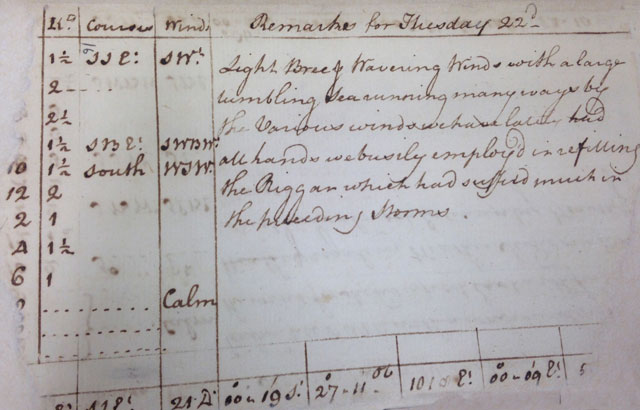 Kn Courses Winds Remarks for Tuesday 22d
1½ SSEt SWt Light Breez Wavering Winds with a large
2 tumbling Sea running many ways by
2½ the Various winds we have lately had
1½ SBEt SWBWt all hands we busily employd in refitting
10 1½ South WSWt the Riggan which had suffered much in
12 2 the preceeding Storms.
2 1
4 1½
6 1
Calm
00 19 St 27 11 00 09 Et